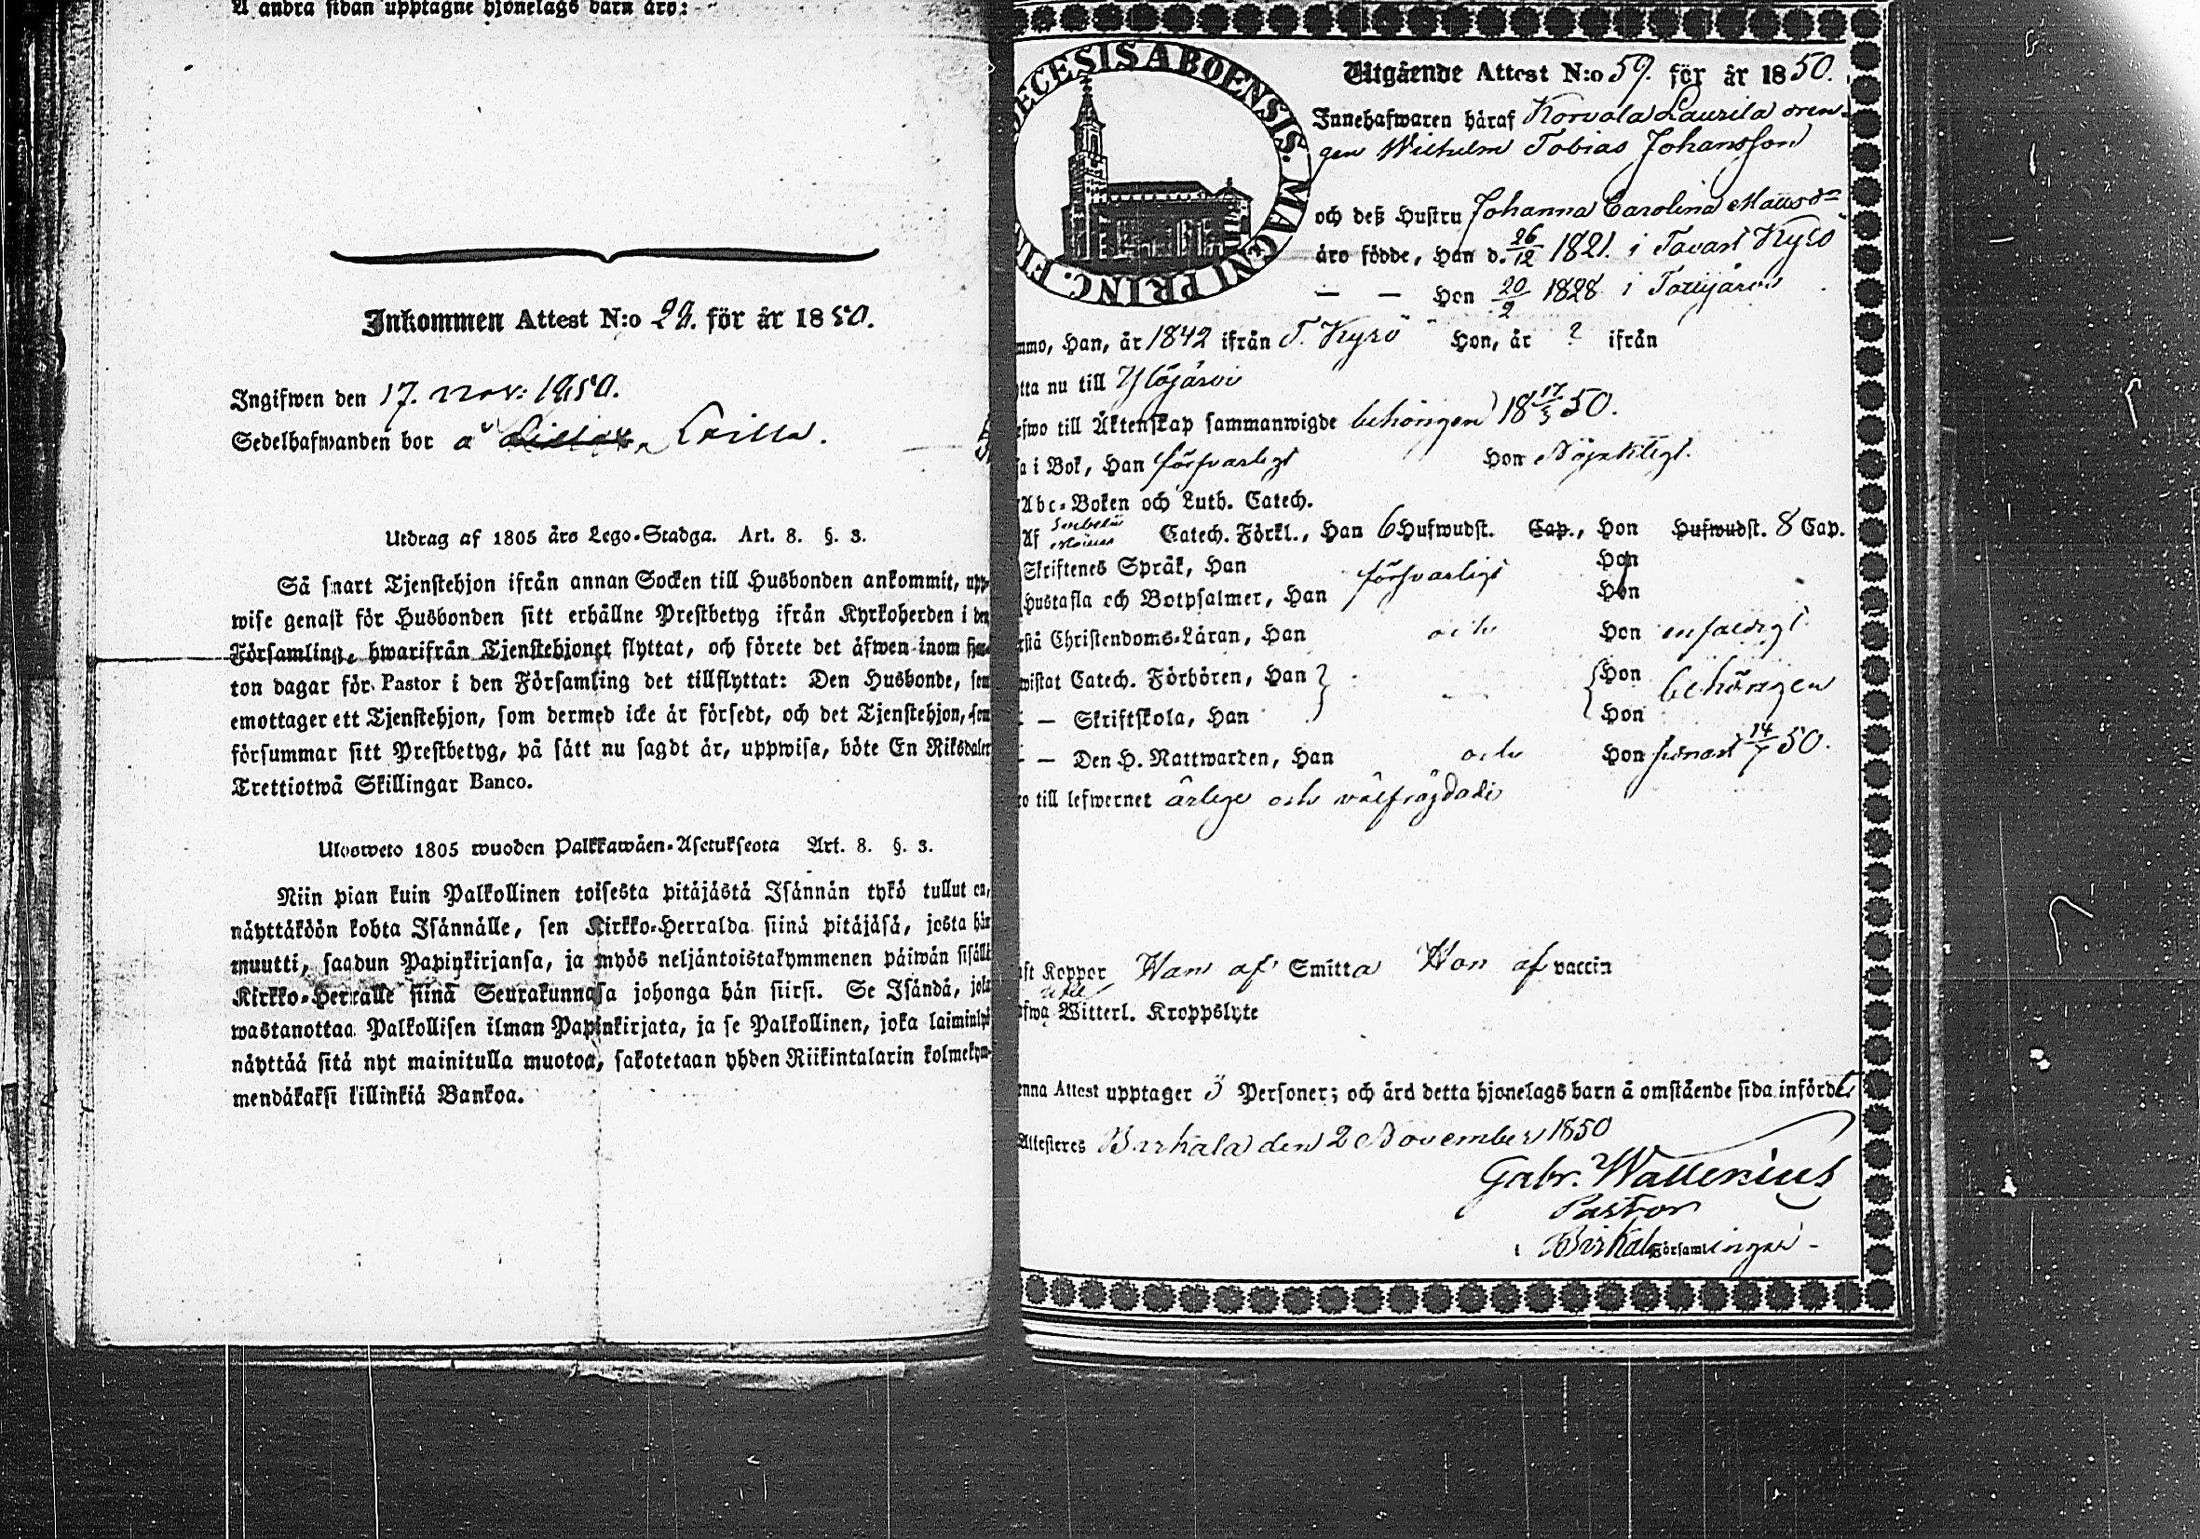 A andra sidan upptagne hjonelags barn äro:
Inkommen Attest N:o 22. för år 1850.
Ingifwen den 17. nov: 1850.
Sedelhafwanden bor å
Utdrag af 1805 års Lego-Stadga. Art. 8. §. 3.
Så snart Tjenstehjon ifrån annan Socken till Husbonden ankommit, upp-
wise genast för Husbonden sitt erhållne Prestbetyg ifrån Kyrkoherden i den
Församling, hwarifrån Tjenstehjonet flyttat, och förete det äfwen inom fjor-
ton dagar för Pastor i den Församling det tillflyttat: Den Husbonde, som
emottager ett Tjenstehjon, som dermed icke är försedt, och det Tjenstehjon, som
försummar sitt Prestbetyg, på sätt nu sagdt är, uppwisa, böte En Riksdaler
Trettiotwå Skillingar Banco.
Ulosweto 1805 wuoden Palkkawäen-Asetuksesta Art. 8. §. 3.
Niin pian kuin Palkollinen toisesta pitäjästä Isännän tykö tullut on,
näyttäköön kohta Isännälle, sen Kirkko-Herralda siinä pitäjäsä, josta hän
muutti, saadun Papinkirjansa, ja myös neljäntoistakymmenen päiwän sisällä
Kirkko-Herralle siinä Seurakunnasa johonga hän siirsi. Se Isändä, joka
wastanottaa Palkollisen ilman Papinkirjata, ja se Palkollinen, joka laiminlyö
näyttää sitä nyt mainitulla muotoa, sakotetaan yhden Riikintalarin kolmekym-
mendäkaksi killinkiä Bankoa.
DIOECESIS ABOENSIS. MAGNI PRINC. FIN
Utgående Attest N:o 59. för år 1850.
Innehafwaren häraf Korvola Laurila dren-
gen Wilhelm Tobias Johansson
och deß Hustru Johanna Carolina Matsd:r
äro födde, Han d. 26/12 1821. i Tavast Kyrö
— — Hon 20/2 1828 i
mmo, Han, år 1842 ifrån T. Kyrö Hon, år ? ifrån
tta nu till Ylöjärvi
efwo till Äktenskap sammanwigde behörigen 18 17/3 50.
a i Bok, Han försvarligt Hon Nöjaktigt.
Abc-Boken och Luth. Catech.
Af Catech. Förkl., Han 6 Hufwudst. Cap., Hon Hufwudst. 8 Cap.
Skriftenes Språk, Han försvarligt Hon
Hustafla och Botpsalmer, Han Hon
rstå Christendoms-Läran, Han och Hon enfaldigt
wistat Catech. Förhören, Han Hon behörigen
— Skriftskola, Han Hon
— — Den H. Nattwarden, Han och Hon senast 14/7 50.
ro till lefwernet ärlige och välfrägdade
ft Koppor Han af Smitta Hon af vaccin
icke
fwa Witterl. Kroppslyte
enna Attest upptager 3 Personer; och ärd detta hjonelags barn å omstående sida införde
Attesteres Birkala den 2 November 1850
Gabr. Wallenius
Pastor
i Birkala Församlingar